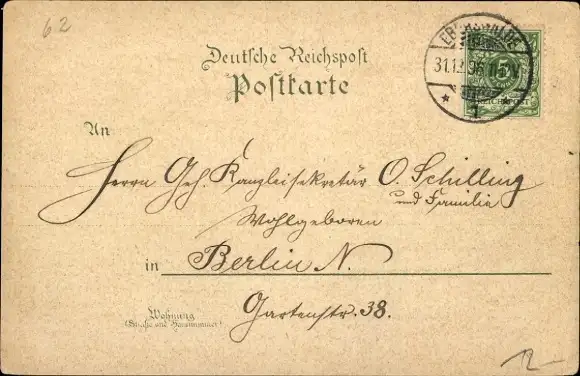 62
Deutsche Reichspost
Postkarte
EBERSWALDE
31.12.96 11-12V
* 1 *
5
REICHSPOST
An
Herrn Geh. Kanzleisekretär O. Schilling
und Familie
Wohlgeboren
in Berlin N.
Wohnung
(Straße und Hausnummer)
Gartenstr. 38.